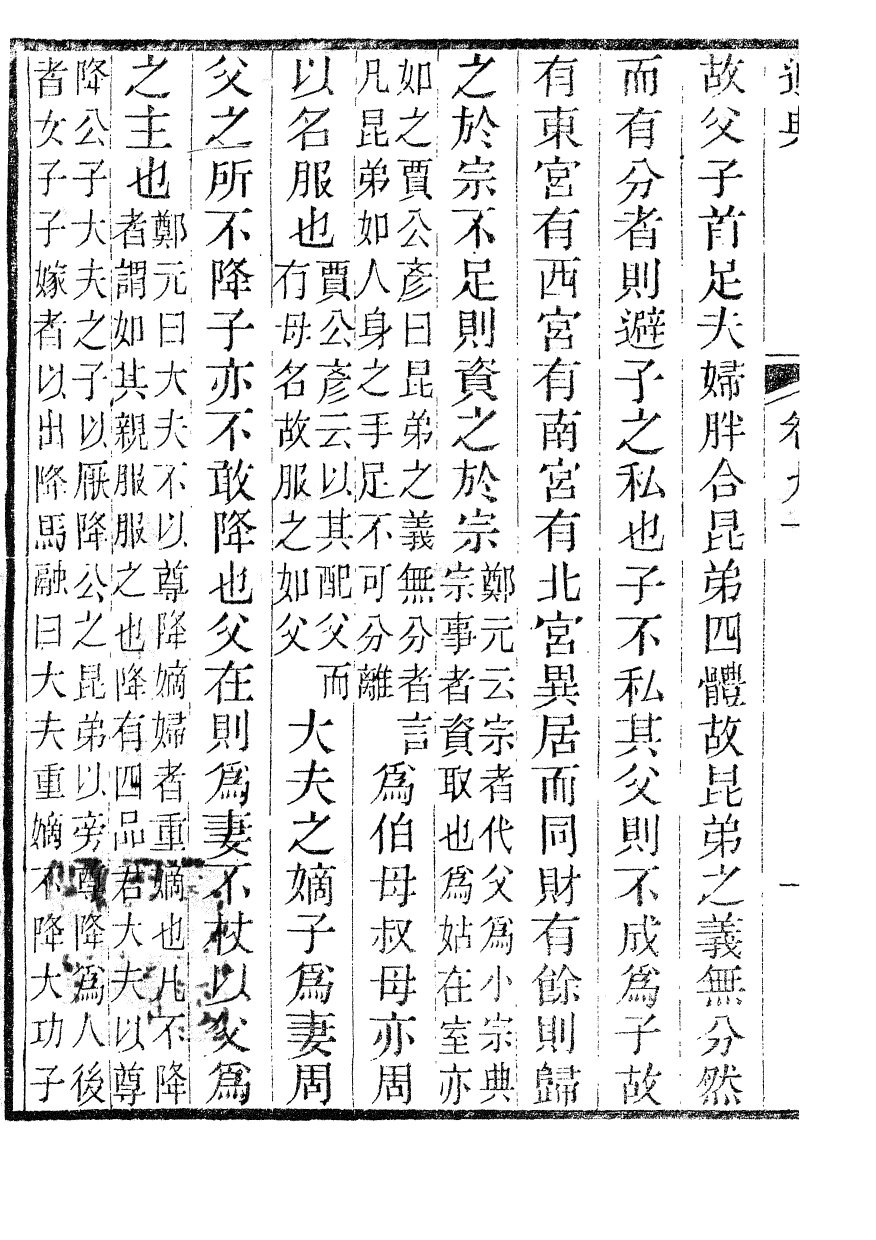 通典　卷九十　一
故父子首足夫婦胖合昆弟四體故昆弟之義無分然
而有分者則避子之私也子不私其父則不成爲子故
有東宮有西宮有南宮有北宮異居而同財有餘則歸
之於宗不足則資之於宗鄭元云宗者代父爲小宗典
宗事者資取也爲姑在室亦
如之賈公彥曰昆弟之義無分者言
凡昆弟如人身之手足不可分離
爲伯母叔母亦周
以名服也賈公彥云以其配父而
有母名故服之如父
大夫之嫡子爲妻周
父之所不降子亦不敢降也父在則爲妻不杖以父爲
之主也鄭元曰大夫不以尊降嫡婦者重嫡也凡不降
者謂如其親服服之也降有四品君大夫以尊
降公子大夫之子以厭降公之昆弟以旁尊降爲人後
者女子子嫁者以出降馬融曰大夫重嫡不降大功子